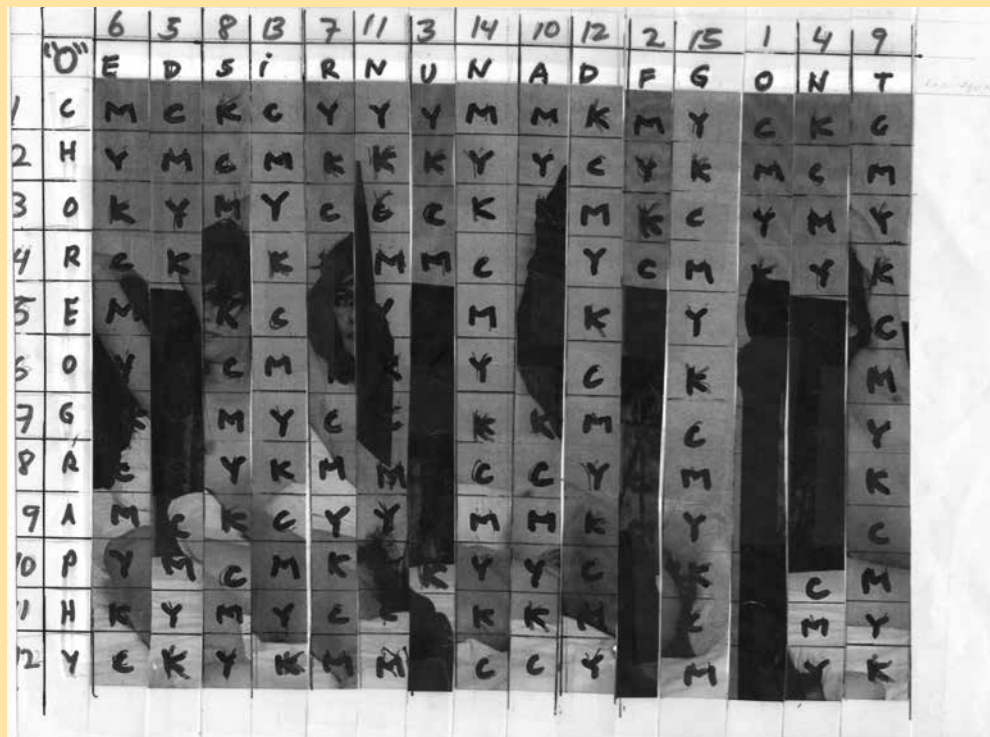 6 5 8 13 7 11 3 14 10 12 2 15 1 4 9
"O" E D S i R N U N A D F G O N T
1 C M C K C Y Y Y M M K M Y C K C
2 H Y M C M K K K Y Y C Y K M C M
3 O K Y M Y C C C K M K C Y M Y
4 R C K K M M C Y C M K Y K
5 E M K C Y M K Y C
6 O Y C M Y C K M
7 G M Y C C K K M C Y
8 R C Y K M M C C Y M K
9 A M C K C Y Y M M K Y C
10 P Y M C M K K Y Y C K C M
11 H K Y M Y C C K K M C M Y
12 Y C K Y K M M C C Y M Y K